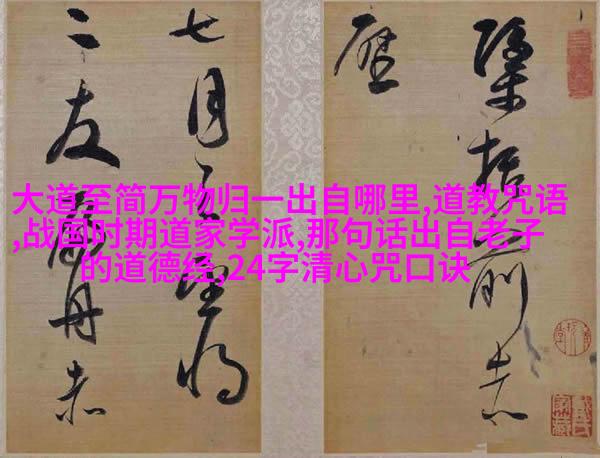 檃括前赤
壁
七月之望将
二友扁舟赤
大道至简万物归一出自哪里,道教咒语
,战国时期道家学派,那句话出自老子
的道德经,24字清心咒口诀